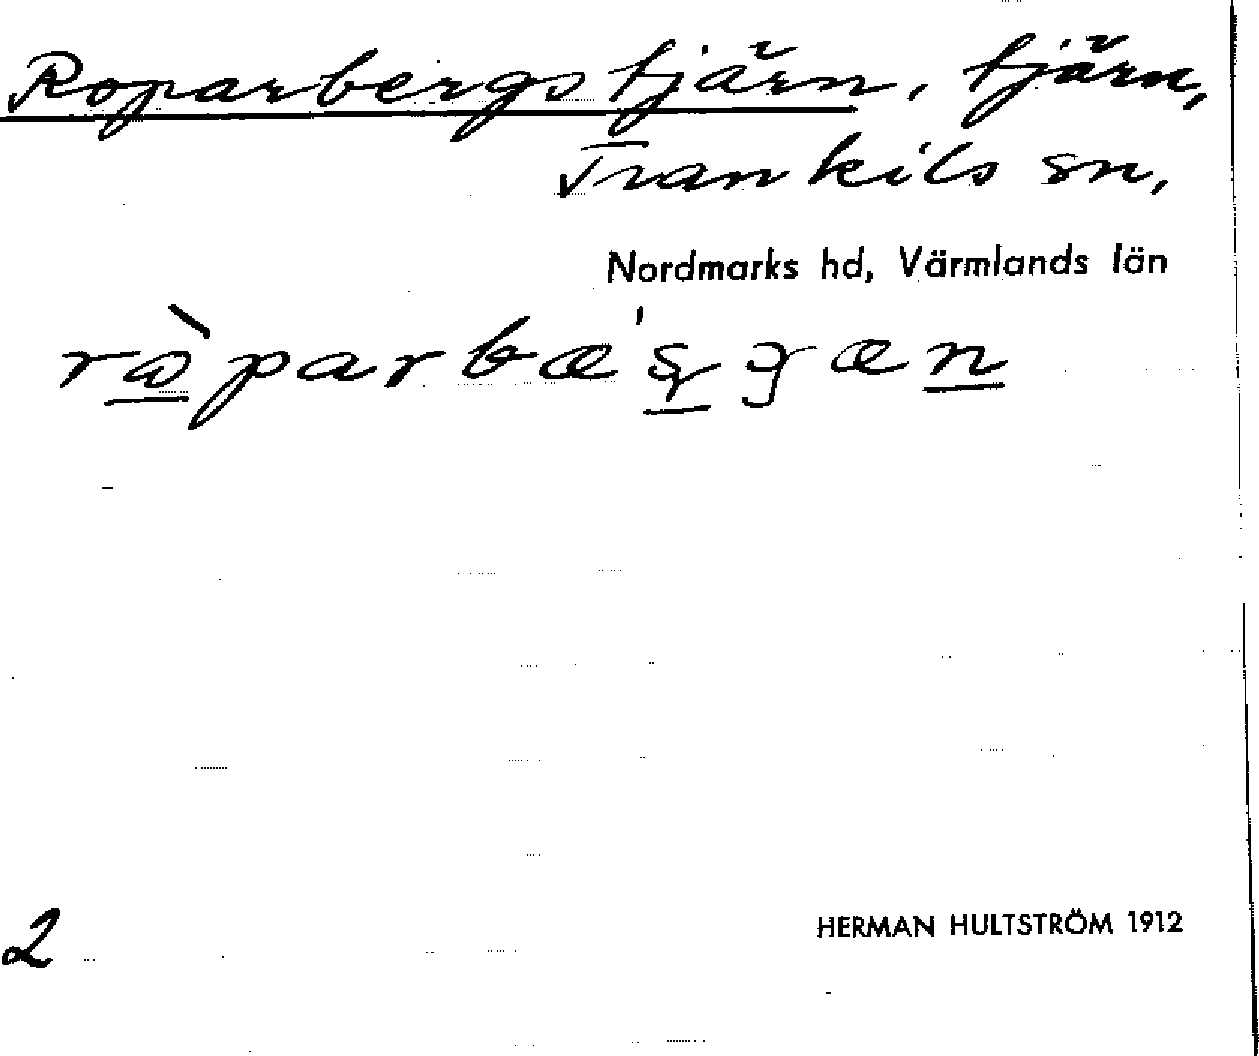 Roparbergstjärn, tjärn,
Trankils sn,
Nordmarks hd, Värmlands län
2
HERMAN HULTSTRÖM 1912